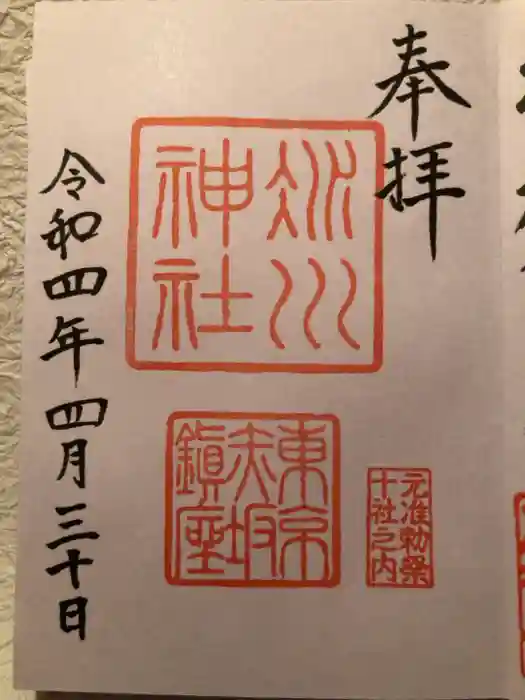 奉拝
氷川
神社
東京
赤坂
鎮座
元准勅祭
十社之内
令和四年四月三十日